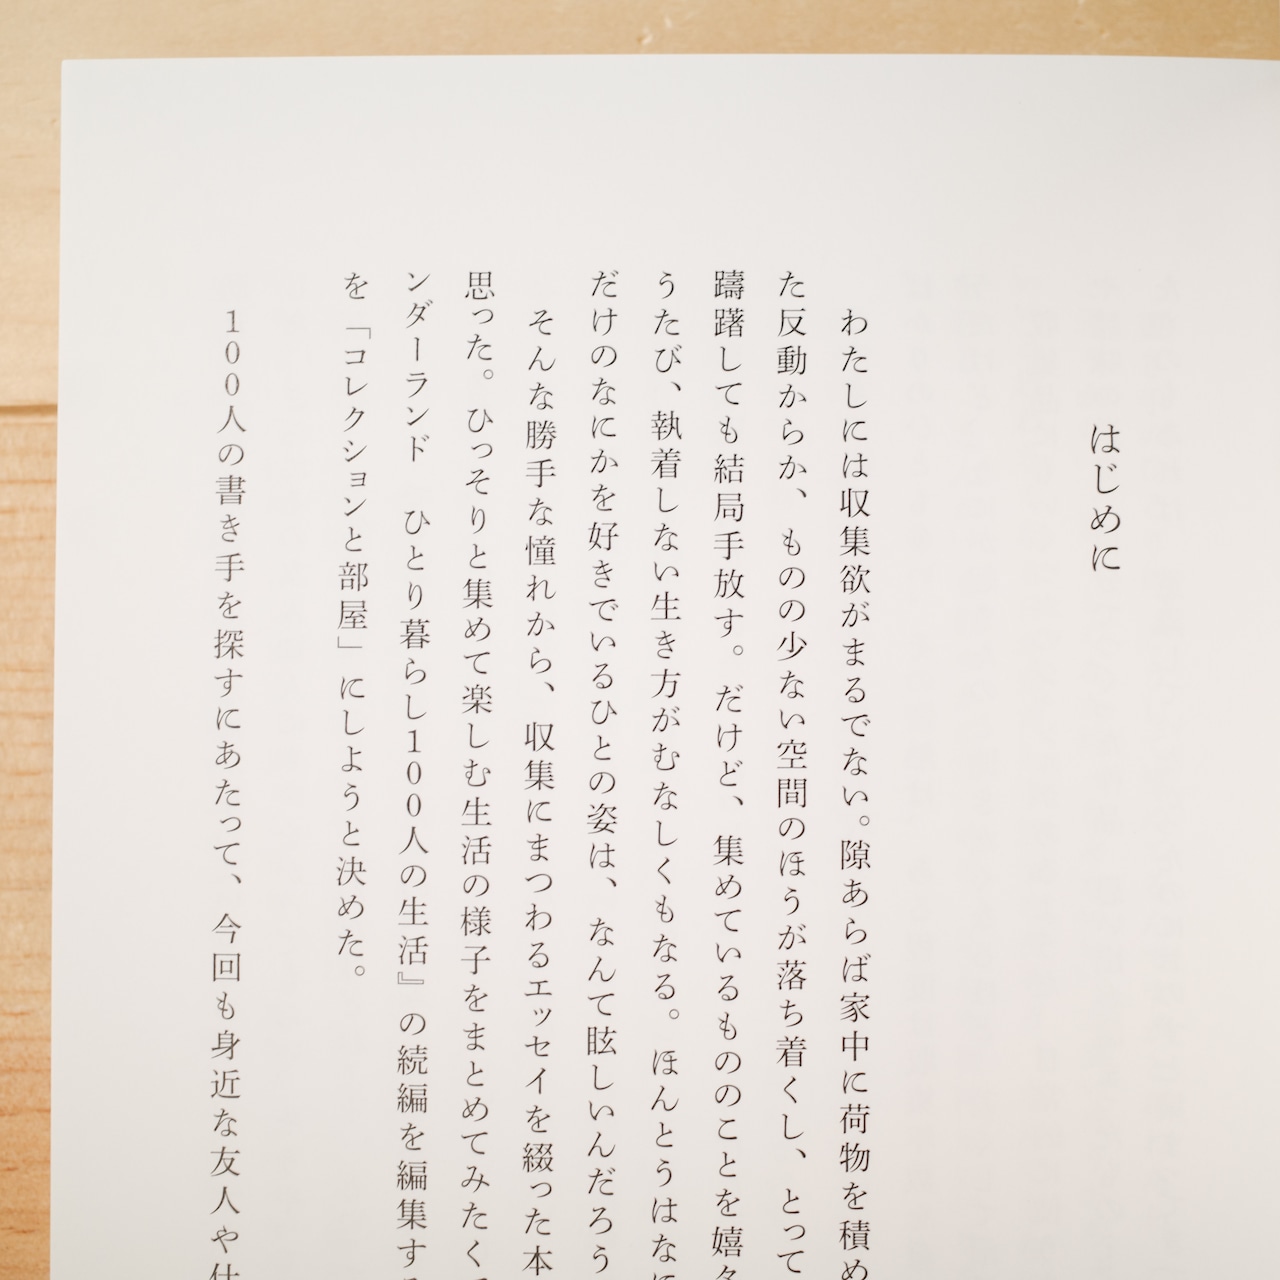 はじめに
わたしには収集欲がまるでない。隙あらば家中に荷物を積め
た反動からか、ものの少ない空間のほうが落ち着くし、とって
躊躇しても結局手放す。だけど、集めているもののことを嬉々
うたび、執着しない生き方がむなしくもなる。ほんとうはなに
だけのなにかを好きでいるひとの姿は、なんて眩しいんだろう
そんな勝手な憧れから、収集にまつわるエッセイを綴った本
思った。ひっそりと集めて楽しむ生活の様子をまとめてみたく
ンダーランド　ひとり暮らし100人の生活』の続編を編集す
を「コレクションと部屋」にしようと決めた。
100人の書き手を探すにあたって、今回も身近な友人や仕